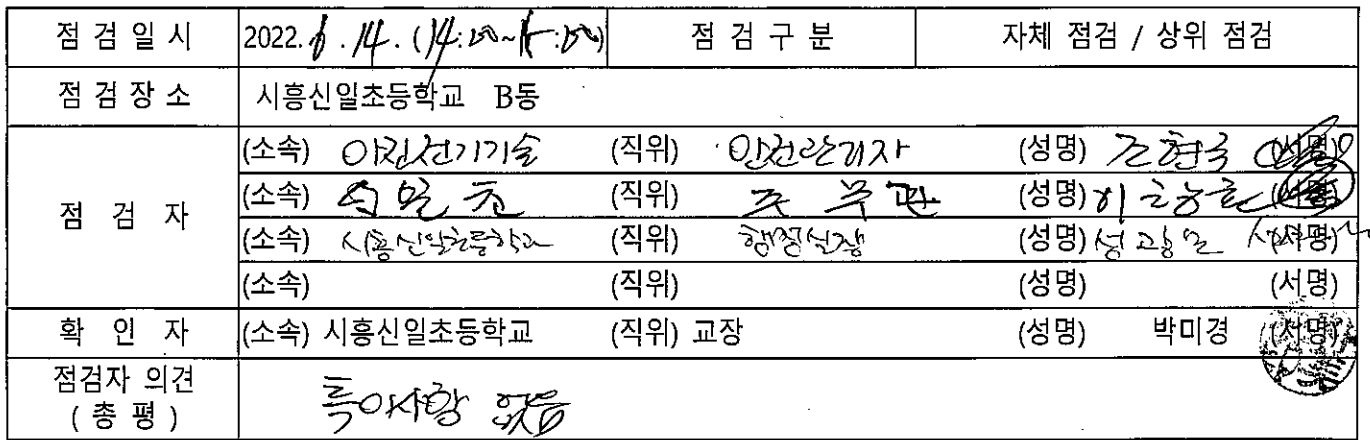 점 검 일 시 2022. 6 . 14 . (14:00~15:00) 점 검 구 분 자체 점검 / 상위 점검
점 검 장 소 시흥신일초등학교 B동
(소속) 이진전기기술 (직위) 안전관리자 (성명) 조현국 (서명)
점 검 자 (소속) 신일초 (직위) 주무관 (성명) 이 (서명)
(소속) 시흥신일초등학교 (직위) 행정실장 (성명) 성 (서명)
(소속) (직위) (성명) (서명)
확 인 자 (소속) 시흥신일초등학교 (직위) 교장 (성명) 박미경 (서명)
점검자 의견
( 총 평 ) 특이사항 없음